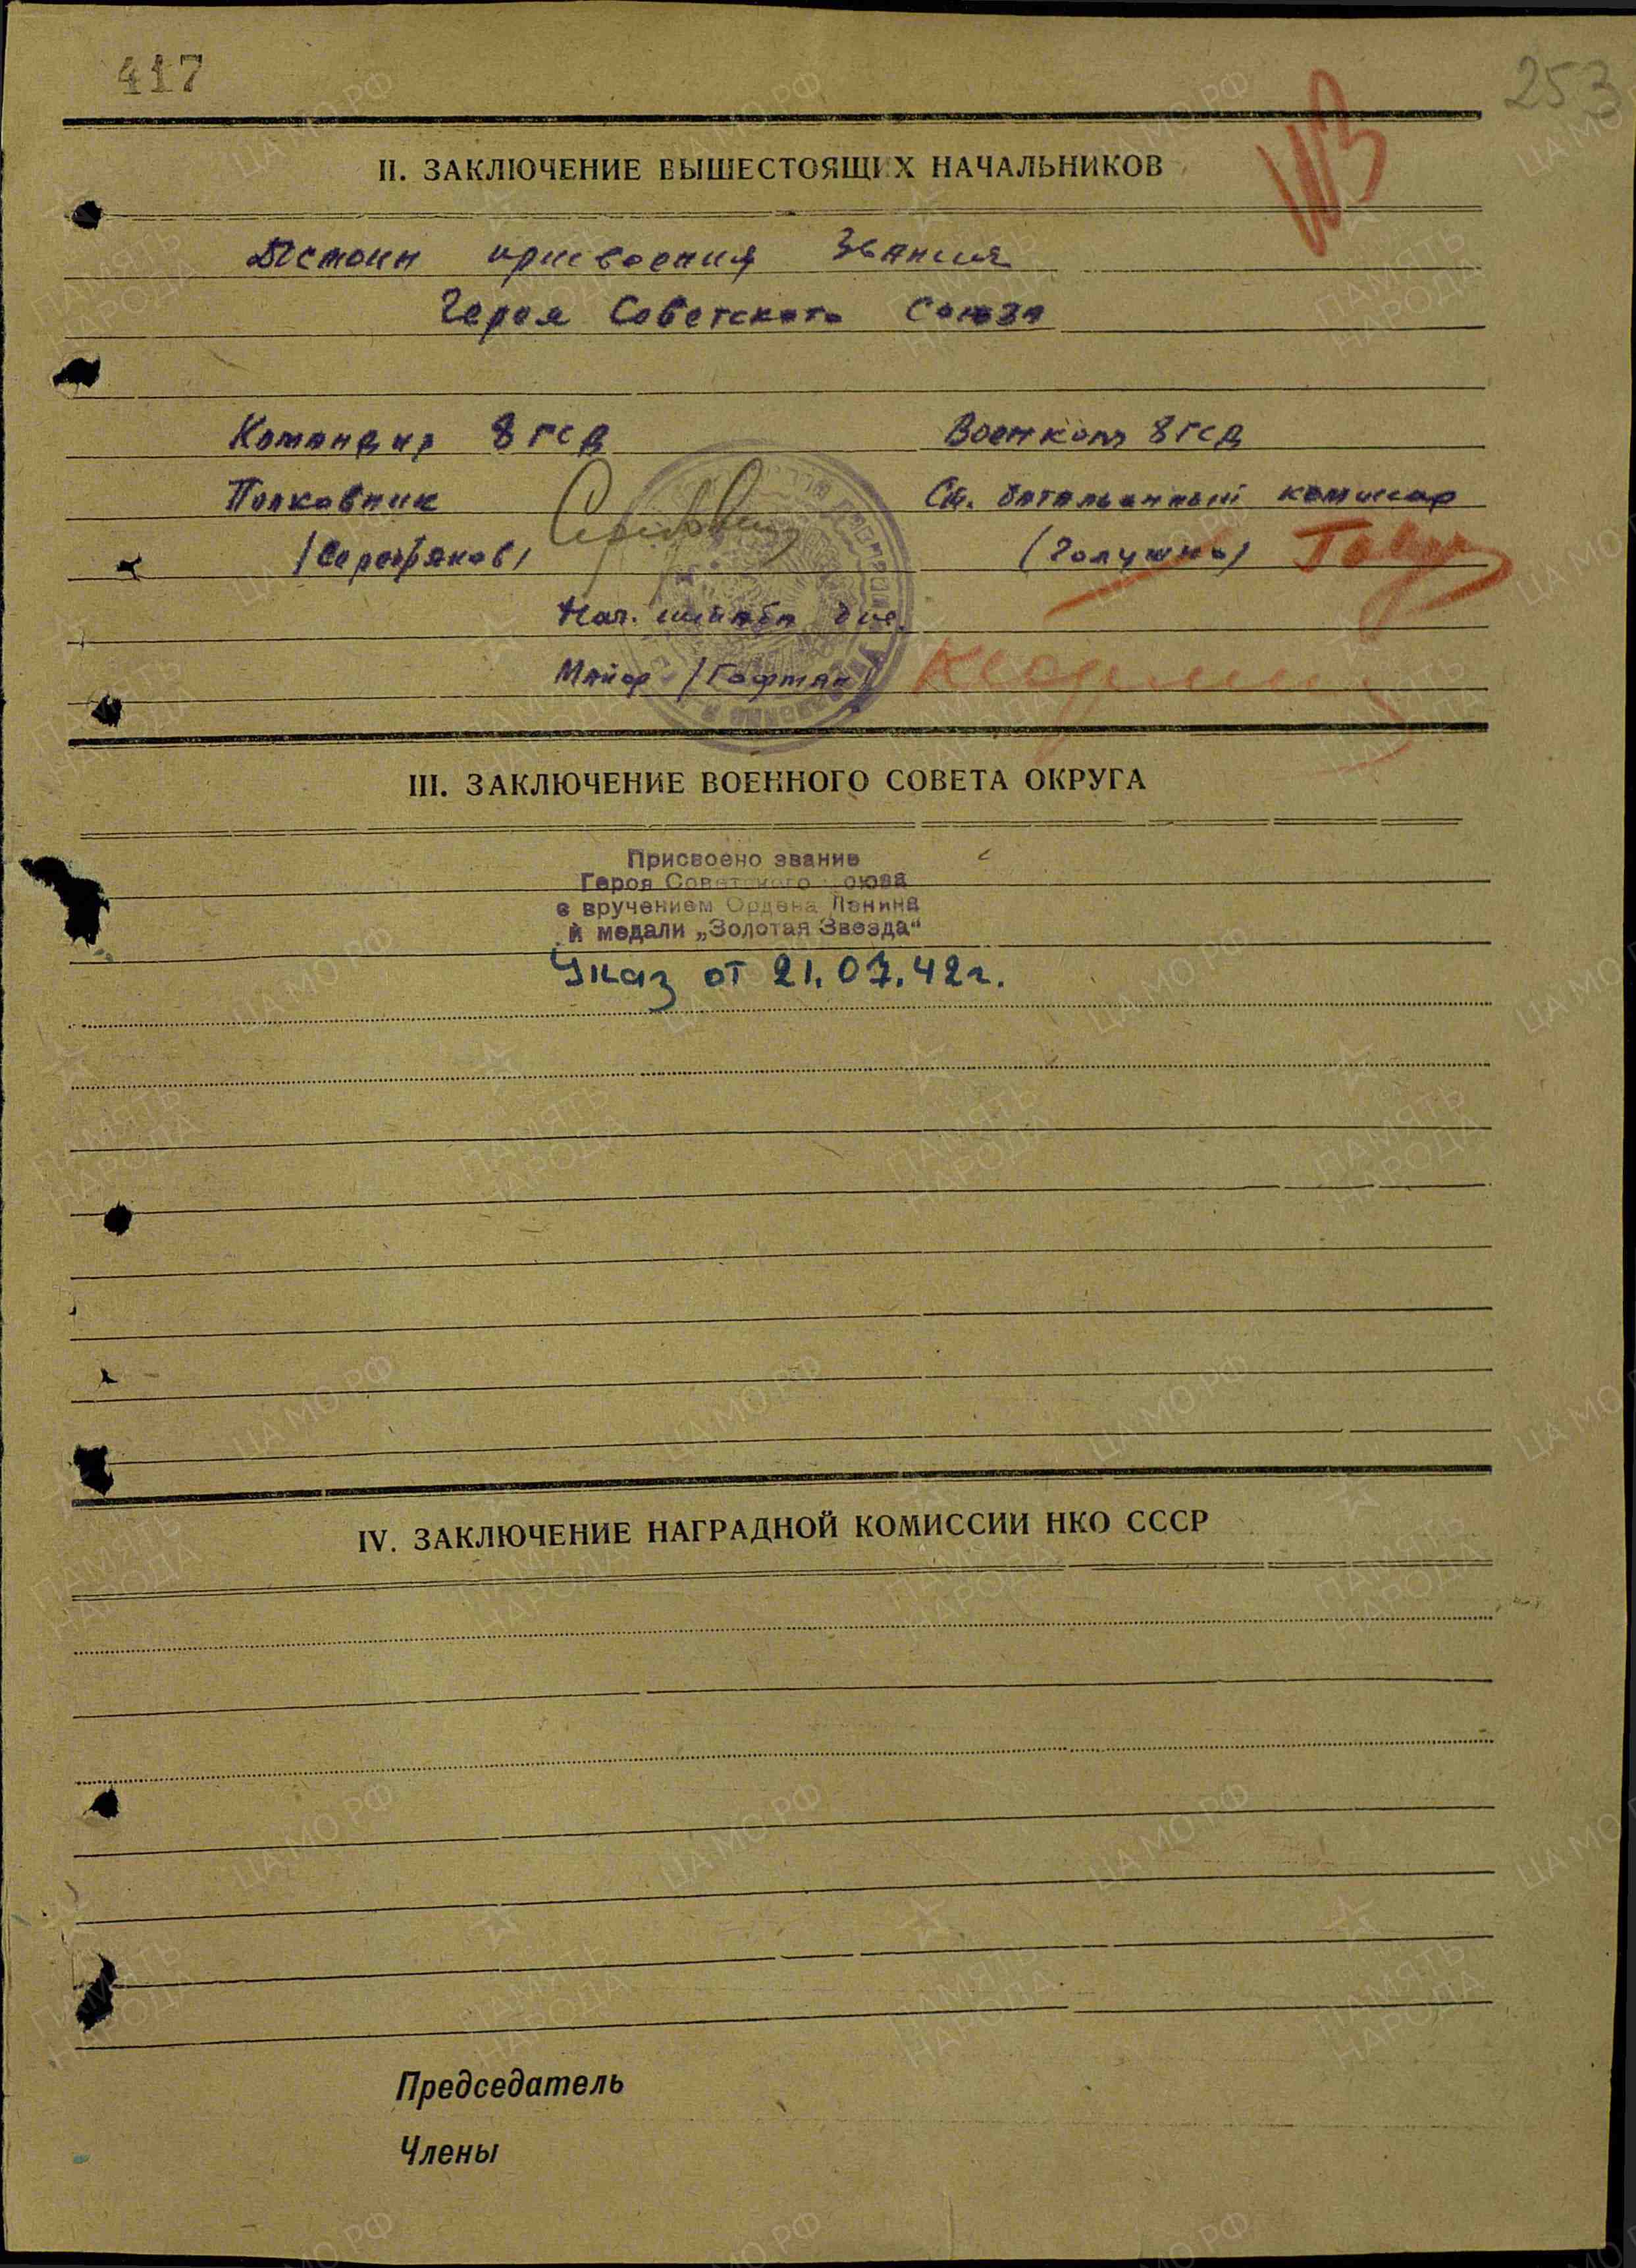 417
253
II. ЗАКЛЮЧЕНИЕ ВЫШЕСТОЯЩИХ НАЧАЛЬНИКОВ
Достоин присвоения звания
Героя Советского Союза
Командир 8 гсд Военком 8 гсд
Полковник Ст. батальонный комиссар
/Серебряков/ (Голушко)
Нач. штаба див.
Майор /Гофман/
III. ЗАКЛЮЧЕНИЕ ВОЕННОГО СОВЕТА ОКРУГА
Присвоено звание
Героя Советского Союза
с вручением Ордена Ленина
и медали „Золотая Звезда“
Указ от 21.07.42г.
IV. ЗАКЛЮЧЕНИЕ НАГРАДНОЙ КОМИССИИ НКО СССР
Председатель
Члены
ЦА МО РФ
ПАМЯТЬ
НАРОДА